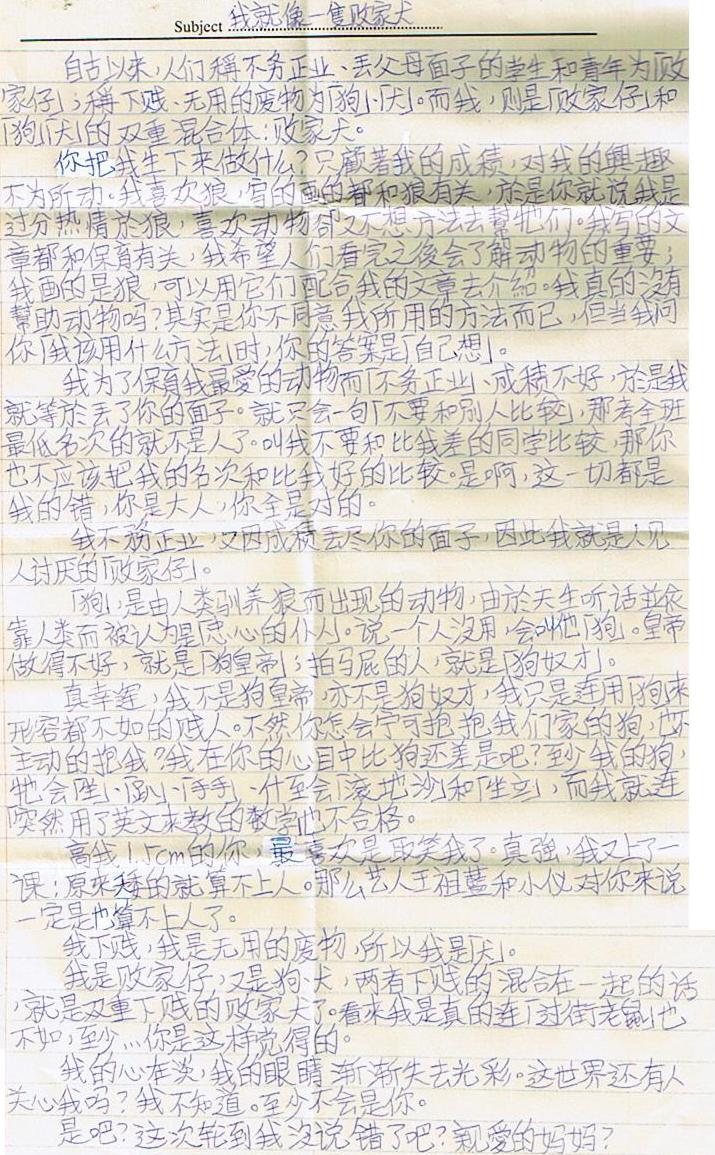 Subject 我就像一隻败家犬
自古以来,人们稱不务正业、丟父母面子的学生和青年为「败
家仔」;稱下贱、无用的废物为「狗」、「犬」。而我,则是「败家仔」和
「狗」「犬」的双重混合体:败家犬。
你把我生下来做什么?只顧著我的成績,对我的興趣
不为所动。我喜欢狼,写的画的都和狼有关,於是你就说我是
过分热情於狼,喜欢动物却又不想方法去幫牠们。我写的文
章都和保育有关,我希望人们看完之後会了解动物的重要;
我画的是狼,可以用它们配合我的文章去介紹。我真的没有
幫助动物吗?其实是你不同意我所用的方法而已,但当我问
你「我该用什么方法」时,你的答案是「自己想」。
我为了保育我最爱的动物而「不务正业」、成績不好,於是我
就等於丟了你的面子。就只会一句「不要和別人比较」,那考全班
最低名次的就不是人了。叫我不要和比我差的同学比较,那你
也不应该把我的名次和比我好的比较。是啊,这一切都是
我的错,你是大人,你全是对的。
我不务正业,又因成績丟尽你的面子,因此我就是人见
人讨厌的「败家仔」。
「狗」,是由人类驯养狼而出现的动物,由於天生听话並依
靠人类而被认为是「忠心的仆人」。说一个人没用,会叫他「狗」。皇帝
做得不好,就是「狗皇帝」;拍马屁的人,就是「狗奴才」。
真幸運,我不是狗皇帝,亦不是狗奴才,我只是连用「狗」来
形容都不如的贱人。不然,你怎会宁可抱抱我们家的狗,也不
主动的抱我?我在你的心目中比狗还差是吧?至少我的狗,
牠会「坐」、「趴」、「手手」、什至会「滚地沙」和「坐立」,而我就连
「突然用了英文来教的数学」也不合格。
高我1.5cm的你,最喜欢是取笑我了。真強,我又上了一
课:原来矮的就算不上人。那么艺人王祖藍和小仪对你来说
一定是也算不上人了。
我下贱,我是无用的废物,所以我是「犬」。
我是败家仔,又是狗、犬,两者下贱的混合在一起的话
,就是双重下贱的败家犬了。看来我是真的连「过街老鼠」也
不如,至少…你是这样觉得的。
我的心在淡,我的眼睛渐渐失去光彩。这世界还有人
关心我吗?我不知道。至少不会是你。
是吧?这次轮到我没说错了吧?親愛的妈妈?